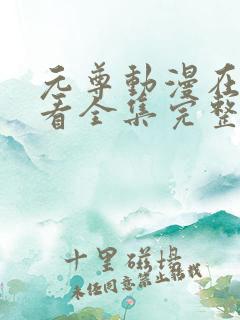 元尊動漫在
看全集完整
十里磁場
未經同意禁止轉載